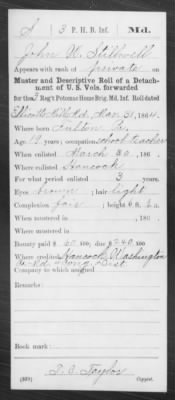 S 3 P. H. B. Inf. Md.
John W. Stillwell
Appears with rank of private on
Muster and Descriptive Roll of a Detach-
ment of U. S. Vols. forwarded
for the 3 Reg't Potomac Home Brig. Md. Inf. Roll dated
Ellicotts Mills Md. Mar 31, 1864.
Where born Fulton Co.
Age 19 years; occupation school teacher
When enlisted March 30, 186
Where enlisted Hancock
For what period enlisted 3 years.
Eyes brown; hair light
Complexion fair; height 6 ft. in.
When mustered in , 186 .
Where mustered in
Bounty paid $ 60 100; due $ 240 100
Where credited Hancock Washington
Co. Md. Cong Dist.
Company to which assigned
Remarks:
Book mark:
T. C. Taylor
(339) Copyist.